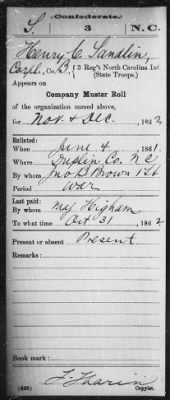 (Confederate.)
S. 3 N.C.
Henry C. Sandlin,
Corpl, Co. B, 3 Reg't North Carolina Inf.
(State Troops.)
Appears on
Company Muster Roll
of the organization named above,
for Nov. & Dec., 1862
Enlisted:
When June 4, 1861.
Where Duplin Co. N.C.
By whom Jno B Brown 1 Lt
Period war
Last paid:
By whom Maj Higham
To what time Oct 31, 1862
Present or absent Present
Remarks:
Book mark:
Copyist.